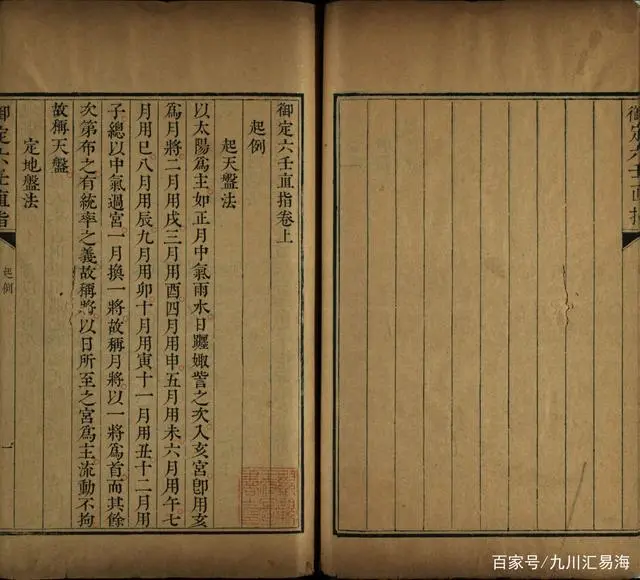 御定六壬直指
御定六壬直指卷上
起例
起天盤法
以太陽爲主如正月中氣雨水日躔娵訾之次入亥宮卽用亥
爲月將二月用戌三月用酉四月用申五月用未六月用午七
月用巳八月用辰九月用卯十月用寅十一月用丑十二月用
子總以中氣過宮一月換一將故稱月將以一將爲首而其餘
次第布之有統率之義故稱將以日所至之宮爲主流動不拘
故稱天盤
定地盤法
御定六壬直指
起例
一
百家号/九川汇易海